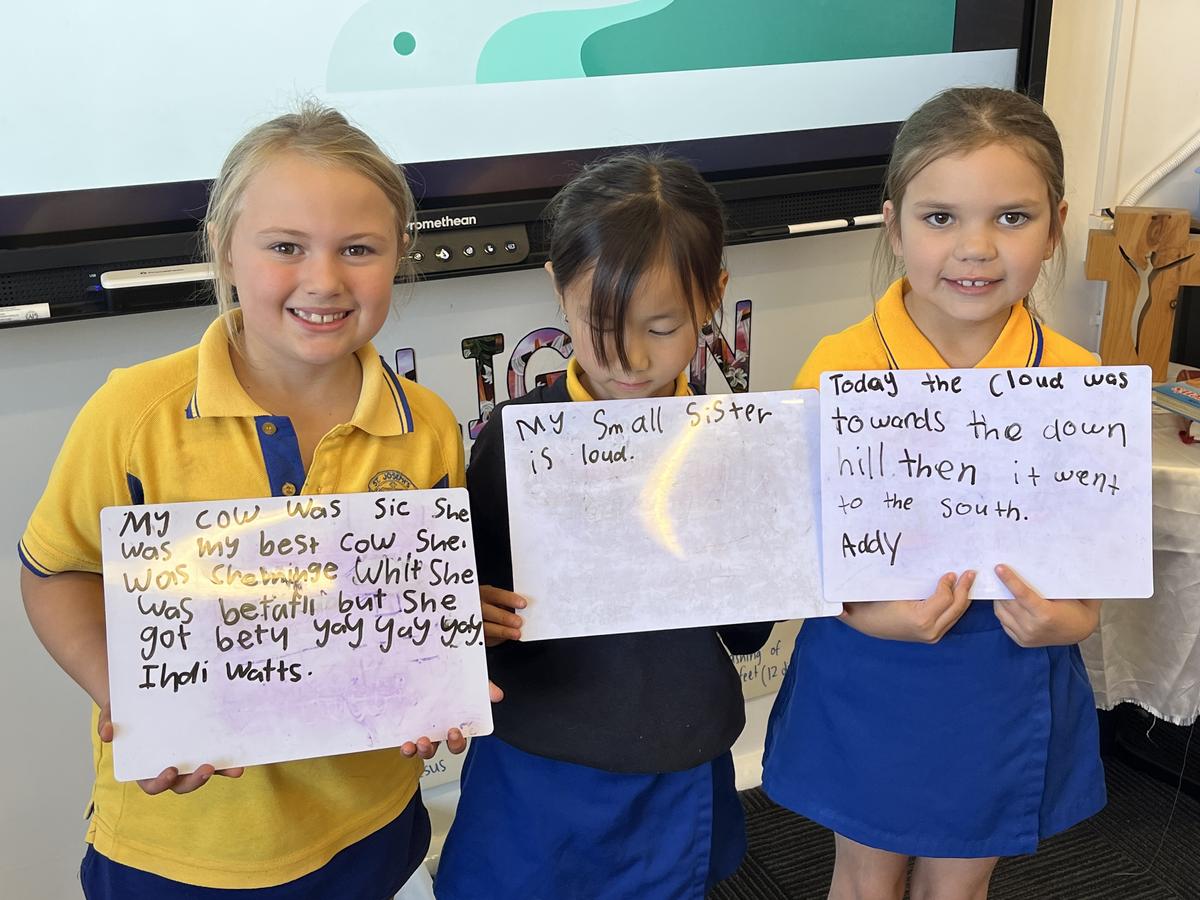 Promethean
LIGION
ST. JOSEPH'S
My cow was sic She
was my best cow She.
was sheminge whit She
was betufli but She
got bety yay yay yay.
Indi Watts.
My Small Sister
is loud.
Today the Cloud was
towards the down
hill then it went
to the south.
Addy
feet (12
sus